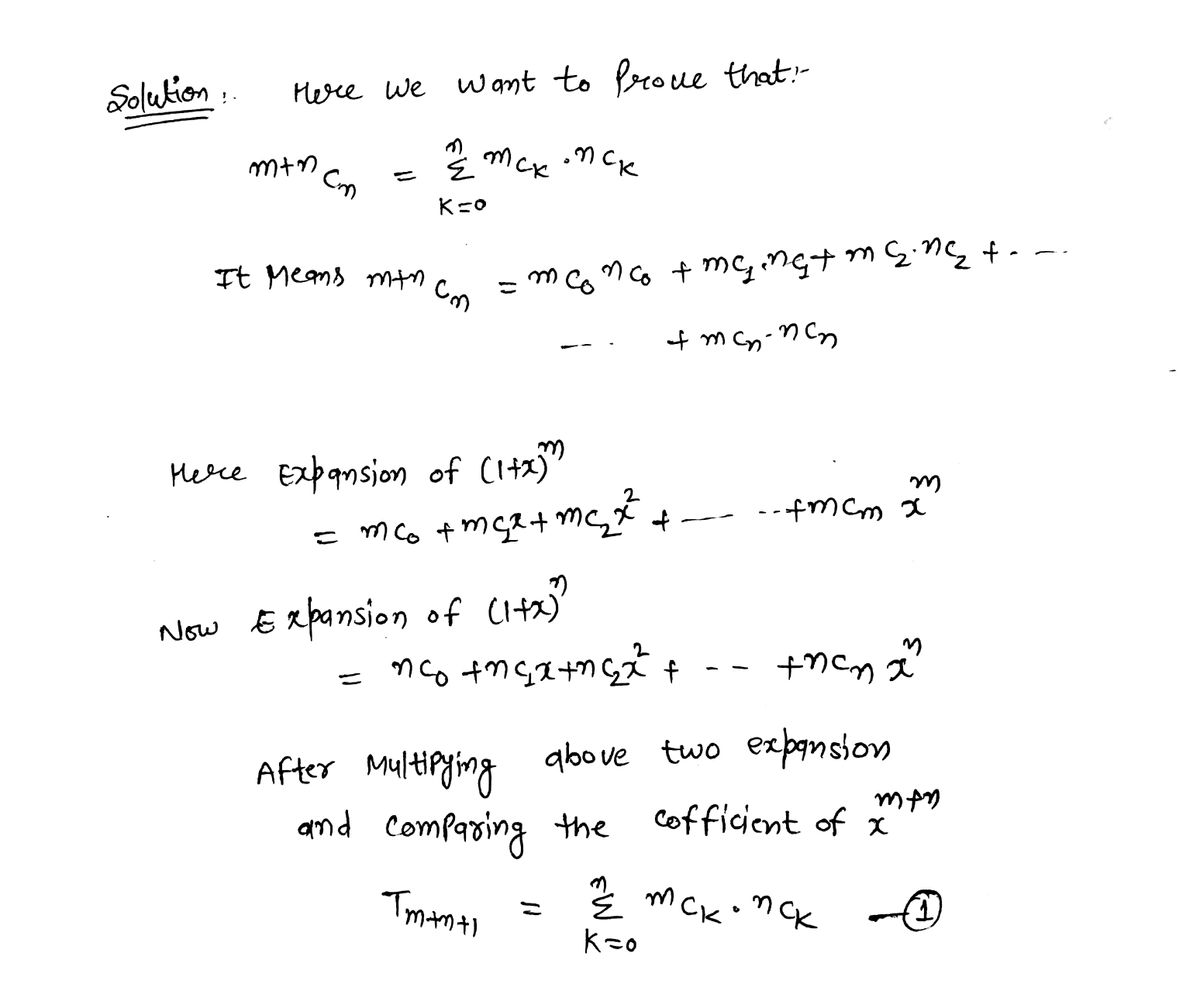 Solution :. Here we want to Prove that:-
m+n Cn = n Σ K=0 mCK . nCK
It Means m+n Cn = mC0 nC0 + mC1.nC1 + mC2.nC2 + - --
--- . + mCn - nCn
Here Expansion of (1+x)^m
= mC0 + mC1x + mC2x^2 + --- --+mCm x^m
Now Expansion of (1+x)^n
= nC0 + nC1x + nC2x^2 + -- +nCn x^n
After Multipying above two expansion
and comparing the cofficient of x^m+n
Tm+n+1 = n Σ K=0 mCK . nCK —①